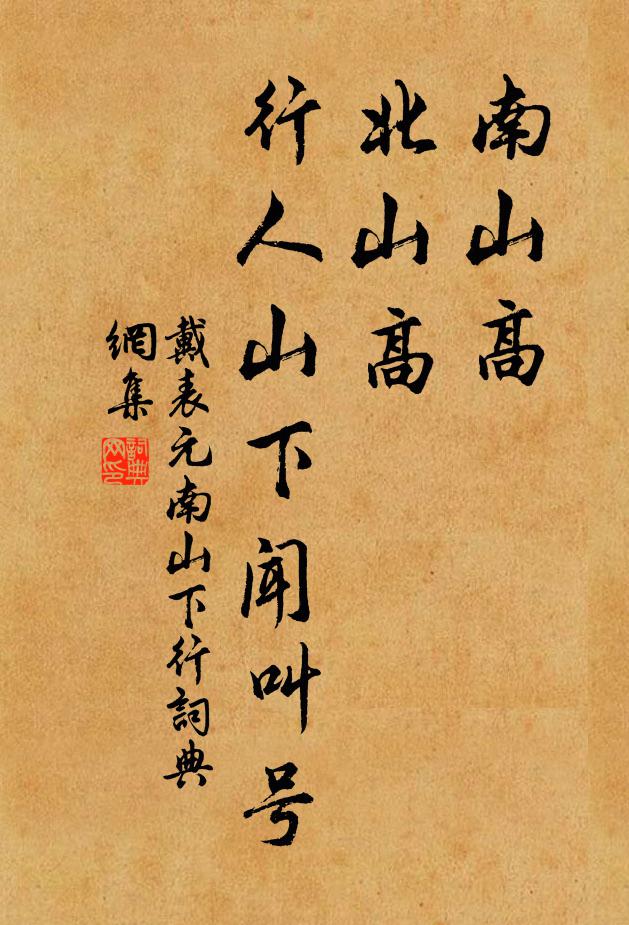 南山高
北山高
行人山下闻叫号
戴表元南山下行詞典
網集
詞典网印